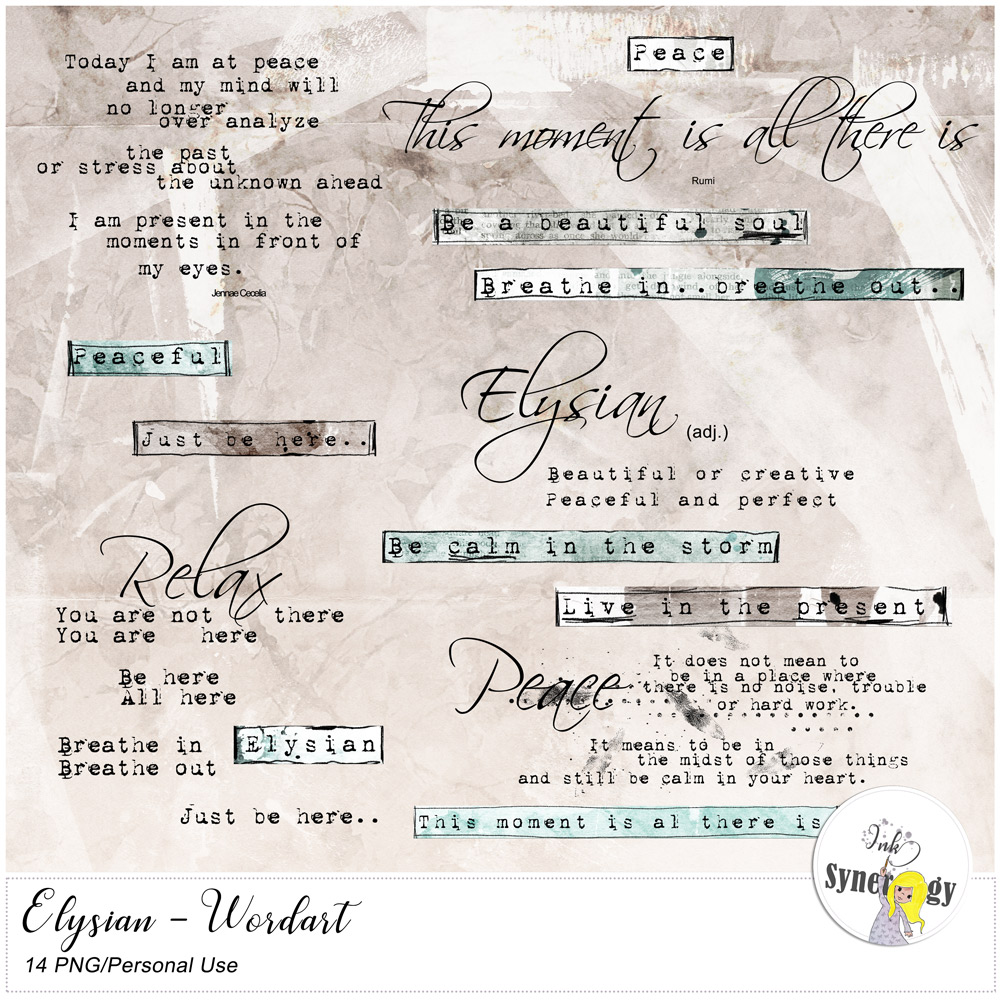 Today I am at peace
and my mind will
no longer
over analyze
the past
or stress about
the unknown ahead
I am present in the
moments in front of
my eyes.
Jennae Cecelia
Peace
This moment is all there is
Rumi
Be a beautiful soul
Breathe in..breathe out..
Peaceful
Just be here..
Elysian
(adj.)
Beautiful or creative
Peaceful and perfect
Be calm in the storm
Live in the present
Relax
You are not there
You are here
Be here
All here
Breathe in
Breathe out
Elysian
Just be here..
Peace
It does not mean to
be in a place where
there is no noise, trouble
or hard work.
It means to be in
the midst of those things
and still be calm in your heart.
This moment is al there is
Ink
Synergy
Elysian - Wordart
14 PNG/Personal Use